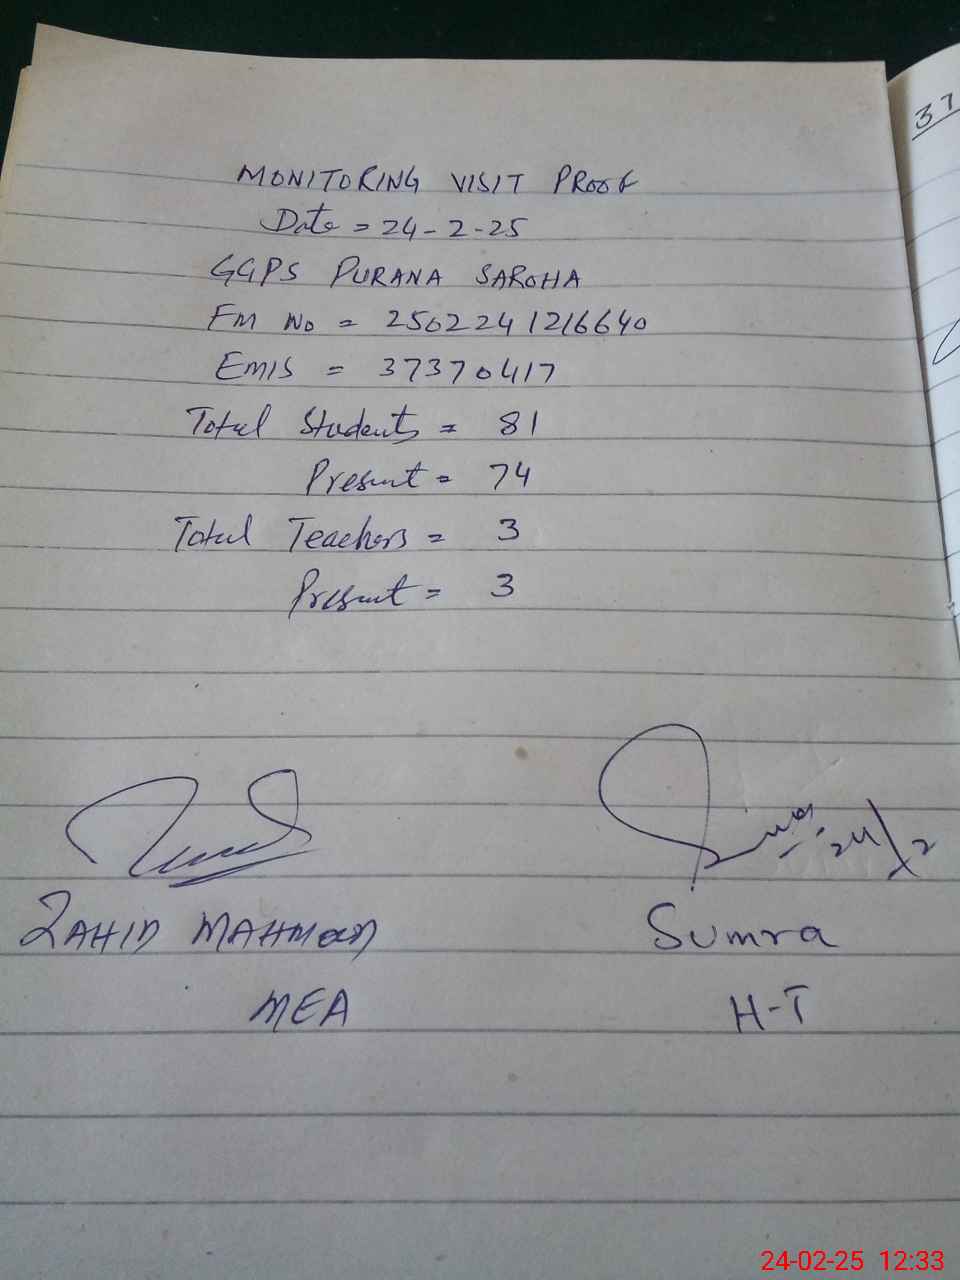 37
MONITORING VISIT PROOF
Date = 24-2-25
GGPS PURANA SAROHA
FM No = 2502241216640
EMIS = 37370417
Total Students = 81
Present = 74
Total Teachers = 3
Present = 3
24/2
ZAHID MAHMOOD
Sumra
MEA
H-T
24-02-25 12:33